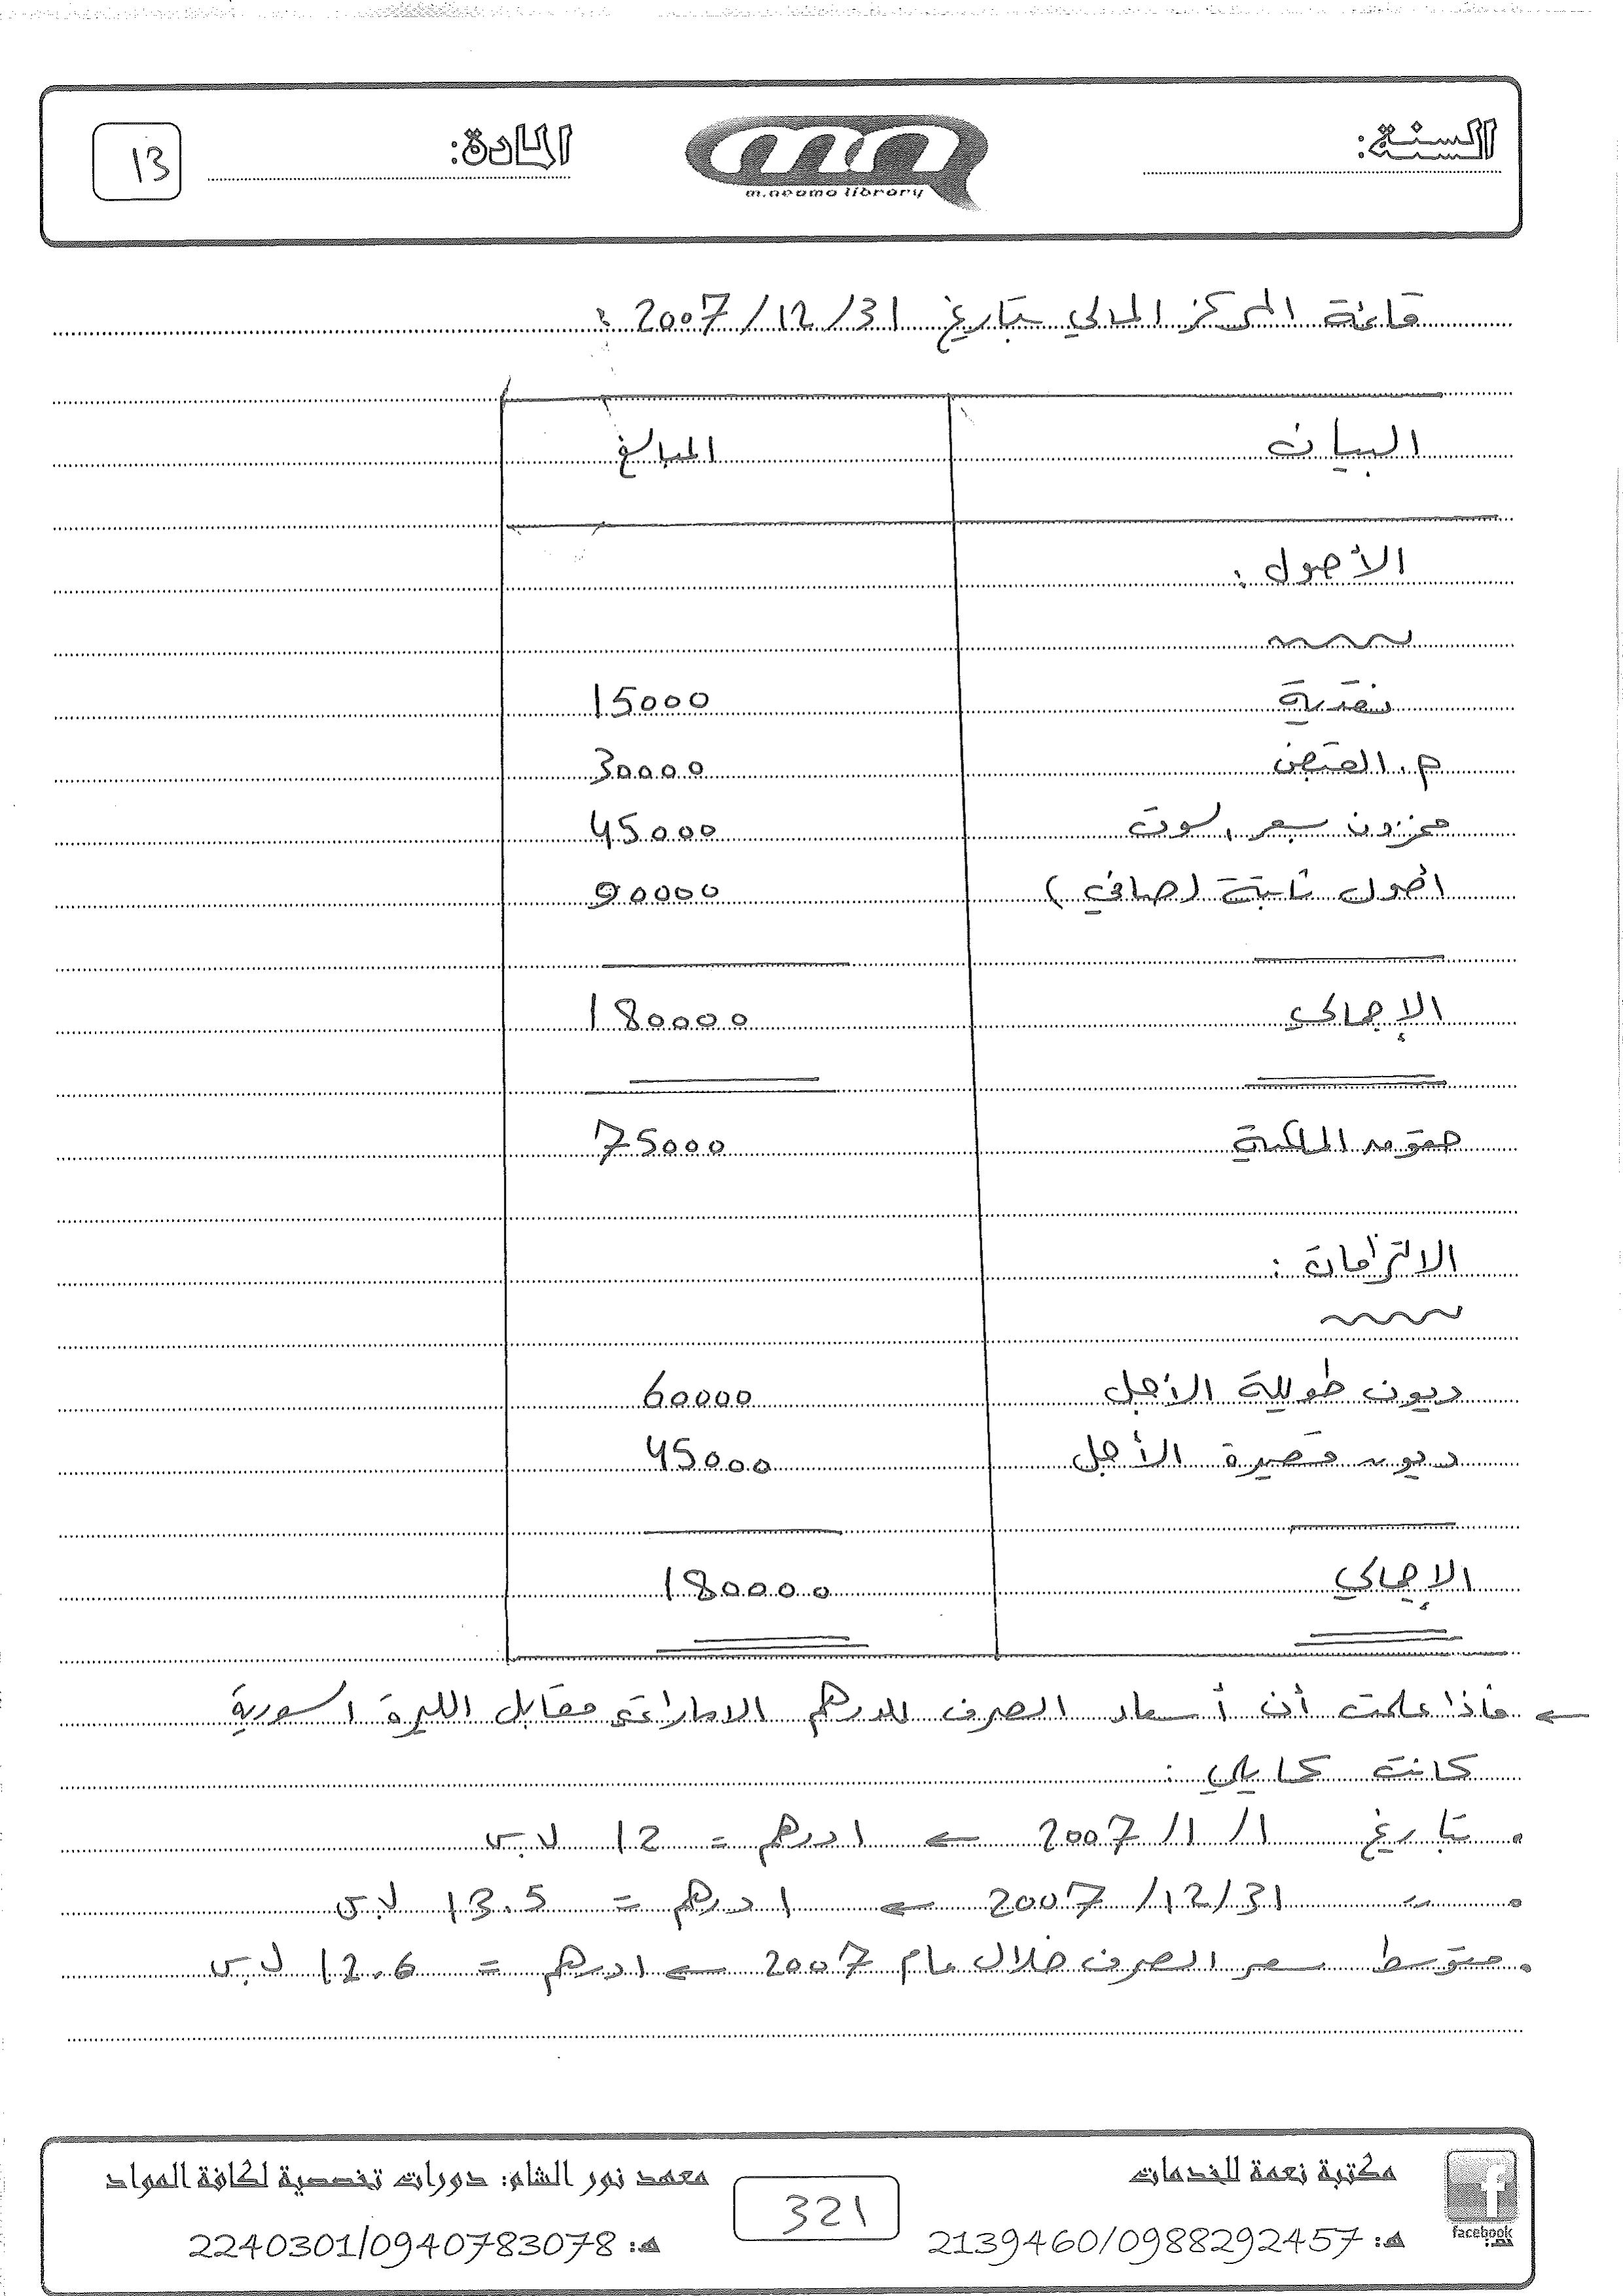 السنة:
m.neama library
المادة:
13
قائمة المركز المالي بتاريخ 31/12/2007 :
البيان المبالغ
الأصول :
نقدية 15000
م. القبض 30000
مخزون بسعر السوق 45000
أصول ثابتة (صافي) 90000
الإجمالي 180000
حقوق الملكية 75000
الالتزامات :
ديون طويلة الأجل 60000
ديون قصيرة الأجل 45000
الإجمالي 180000
← فإذا علمت أن أسعار الصرف للدرهم الاماراتي مقابل الليرة السورية
كانت كمايلي :
. بتاريخ 1/1/2007 ← 1 درهم = 12 ل.س
. 〃 31/12/2007 ← 1 درهم = 13.5 ل.س
. متوسط سعر الصرف خلال عام 2007 ← 1 درهم = 12.6 ل.س
مكتبة نعمة للخدمات
هـ: 2139460/0988292457
facebook
321
معهد نور الشام: دورات تخصصية لكافة المواد
هـ: 2240301/0940783078